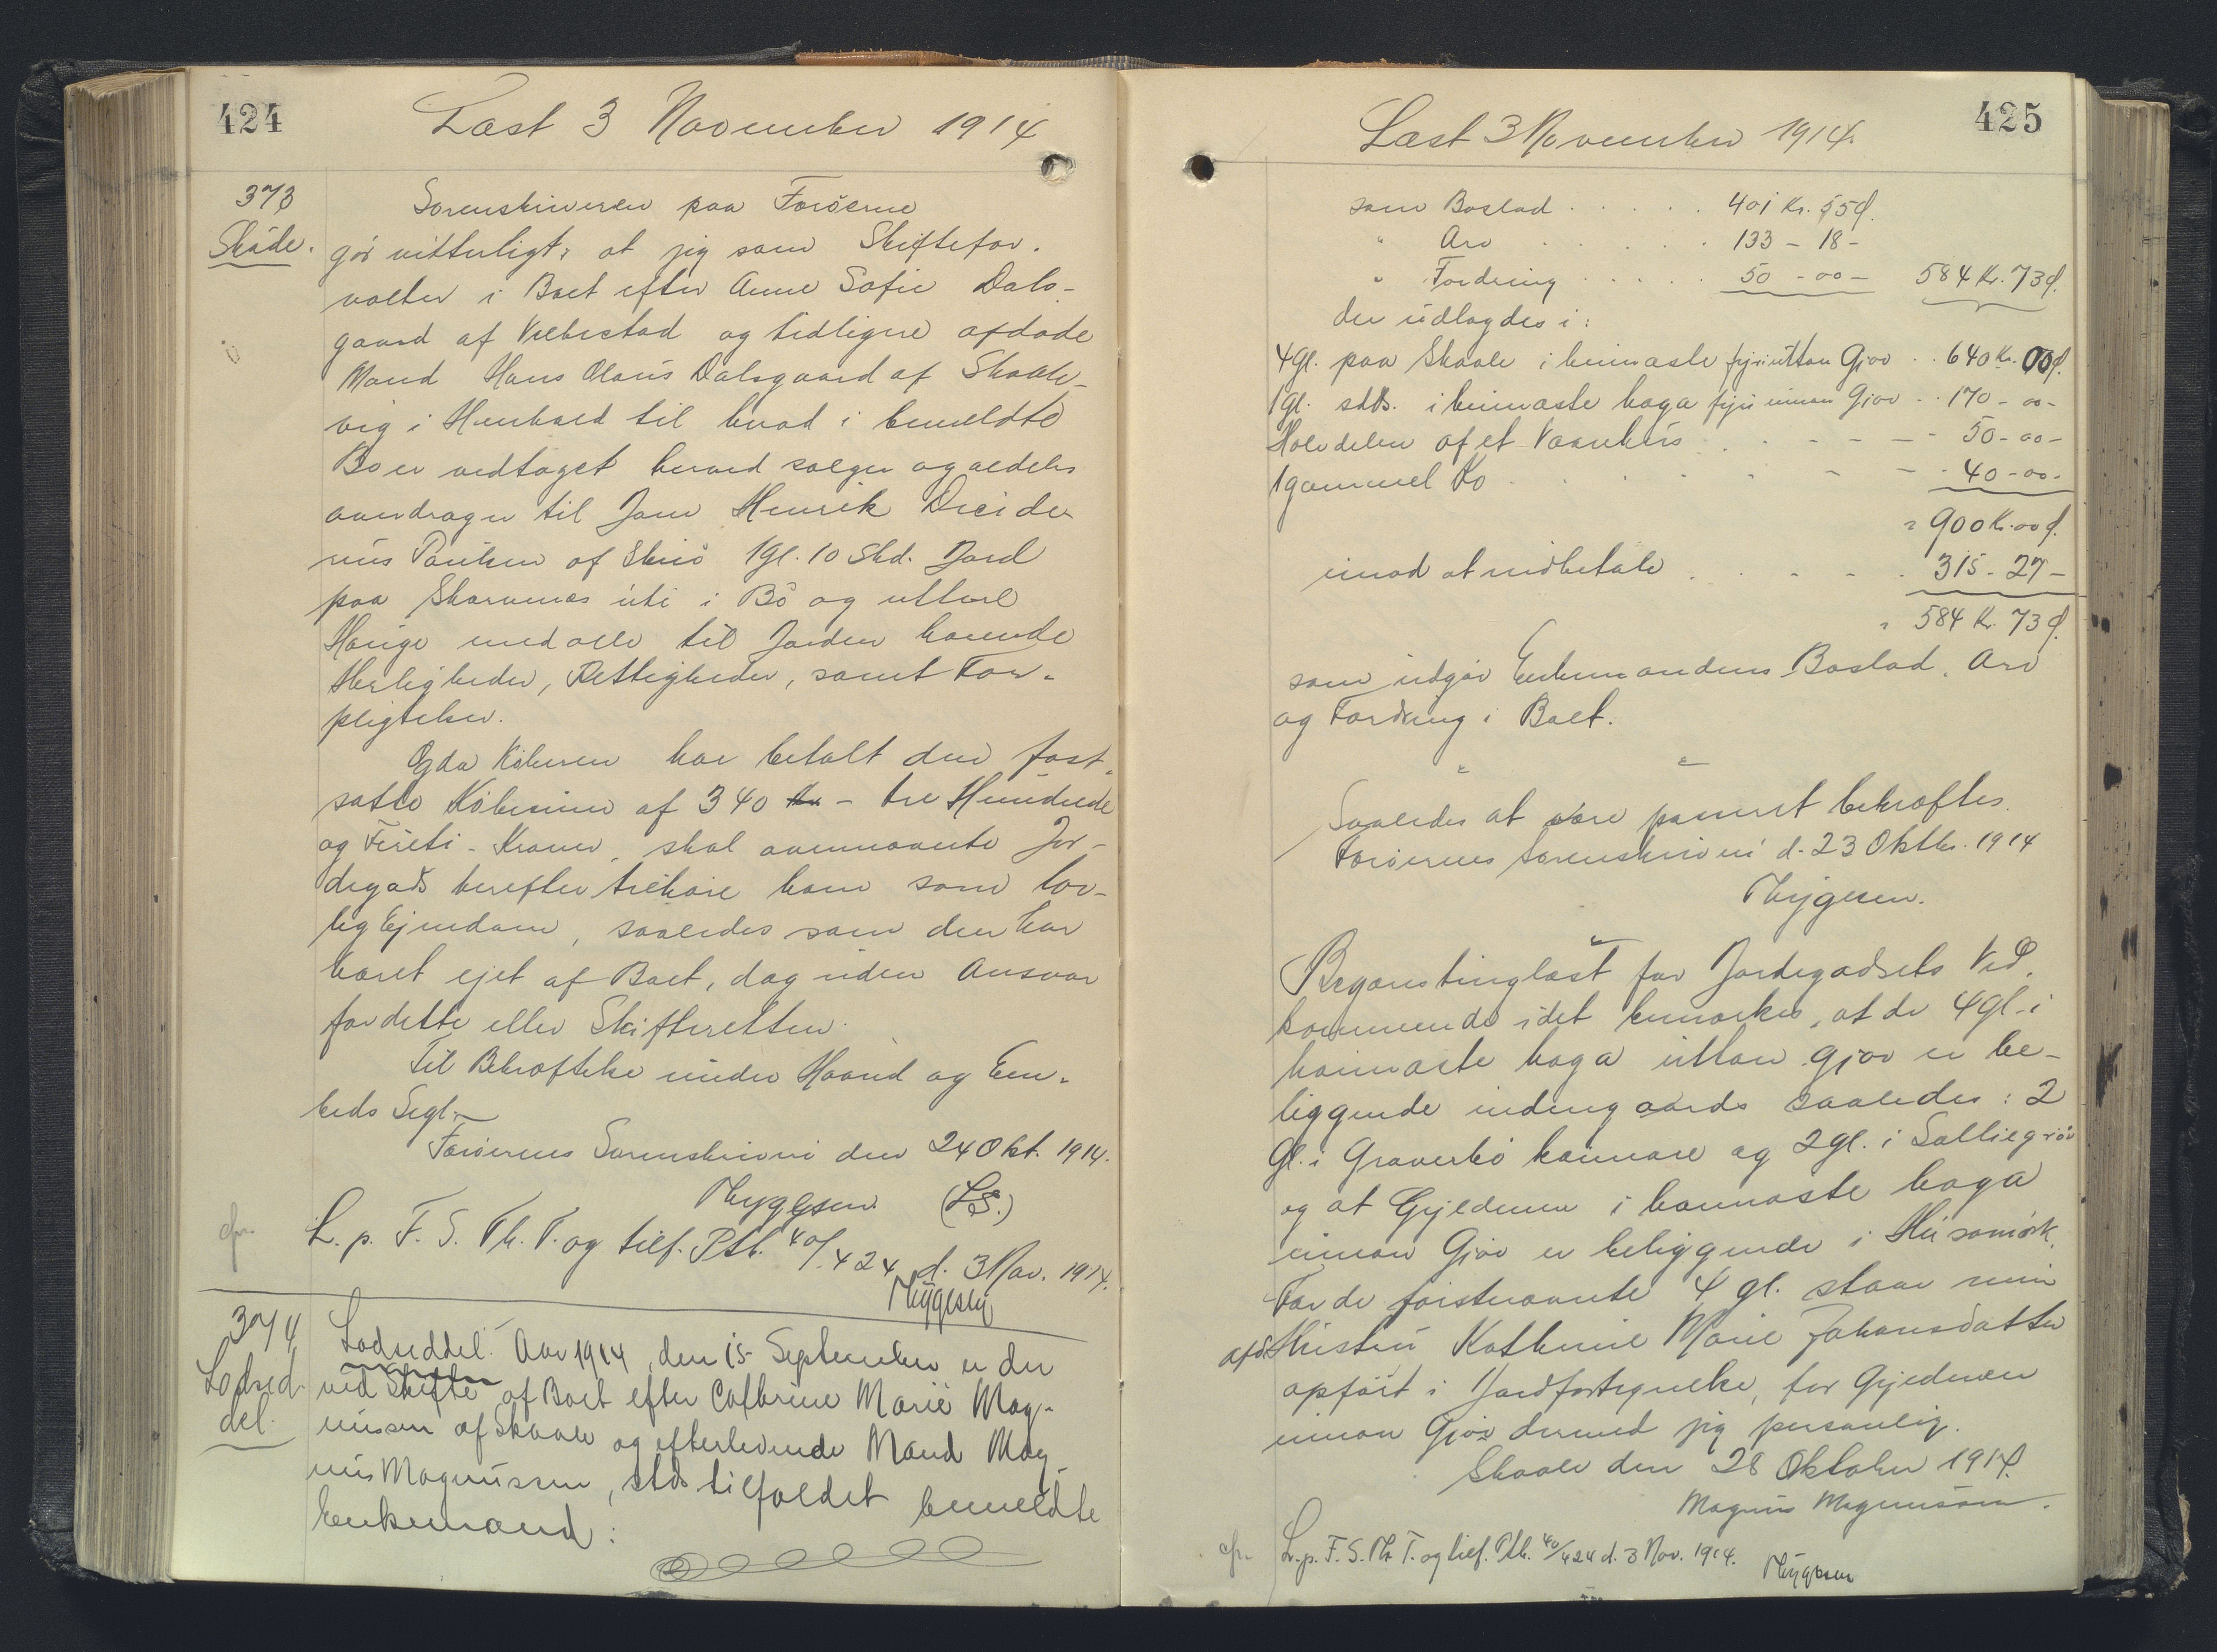 424
Læst 3 November 1914
373
Skøde.
Sorenskriveren paa Færøerne
gør vitterligt: at jeg som Skiftefor-
valter i Boet efter Anne Sofie Dals-
gaard af Velbestad og tidligere afdøde
Mand Hans Olaus Dalsgaard af Skaale-
vig i Henhold til hvad i bemeldte
Bo er vedtaget herved sælger og aldeles
overdrager til Jens Henrik
Poulsen af 1 Gl. 10 Skd. Jord
paa Skarvenes uti i Bø og uttare
Hauge med alle til Jorden hørende
Herligheder, Rettigheder, samt For-
pligtelser.
Og da Køberen har betalt den fast-
satte Købesum af 340 Kr - tre Hundrede
og Fireti - Kroner, skal ovennævnte Jor-
degods herefter tilhøre ham som lov-
lig Ejendom, saaledes som den har
været ejet af Boet, dog uden Ansvar
for dette eller Skifteretten.
Til Bekræftelse under Haand og Em-
beds Segl.
Færøernes Sorenskriveri den 24 Okt. 1914.
Thygesen (LS.)
cfr.
L. p. F. S. Th. T. og tilf. Ptb. 40/424 d. 3 Nov. 1914.
Thygesen
374
Lodsed-
del.
Lodseddel. Aar 1914, den 15 September er der
ved Skifte af Boet efter Cathrine Marie Mag-
nussen af Skaale og efterlevende Mand Mag-
nus Magnussen, stds tilfaldet bemeldte
Enkemand:
425
Læst 3 November 1914.
som Boslod . . . . . 401 Kr. 55 Ø.
" Arv . . . . . . 133 - 18 -
" Fordring . . . . 50 - 00 - 584 Kr. 73 Ø.
der udlagdes i:
4 Gl. paa Skaale i heimaste fyri uttan Gjov . . 640 Kr. 00 Ø.
1 Gl. stds. i heimaste haga fyri innan Gjov . . 170 - 00 -
Halvdelen af et Vaanhus . . - - - - 50 - 00 -
1 gammel Ko . . . . . - - 40 - 00 -
= 900 Kr. 00 Ø.
imod at udbetale . . - - . 315 - 27 -
= 584 Kr. 73 Ø.
som udgør Enkemandens Boslod, Arv
og Fordring i Boet.
Saaledes at være passeret bekræftes.
Færøernes Sorenskriveri d. 23 Oktbr. 1914
Thygesen.
Begæres tinglæst for Jordegodsets Ved-
kommende idet bemærkes, at de 4 Gl. i
heimaste haga uttan Gjov er be-
liggende indengaards saaledes: 2
Gl. i heimare og 2 gl. i
og at Gyldenen i heimaste haga
innan Gjov er beliggende i Húsamørk.
For de førstnævnte 4 gl. staar min
afd. Hustru Kathrine Marie Johansdatter
opført i Jordfortegnelse, for Gyldenen
innan Gjov dermed jeg personlig.
Skaale den 28 Oktober 1914.
Magnus Magnussen.
cfr.
L. p. F. S. Th. T. og tilf. Ptb. 40/424 d. 3 Nov. 1914.
Thygesen